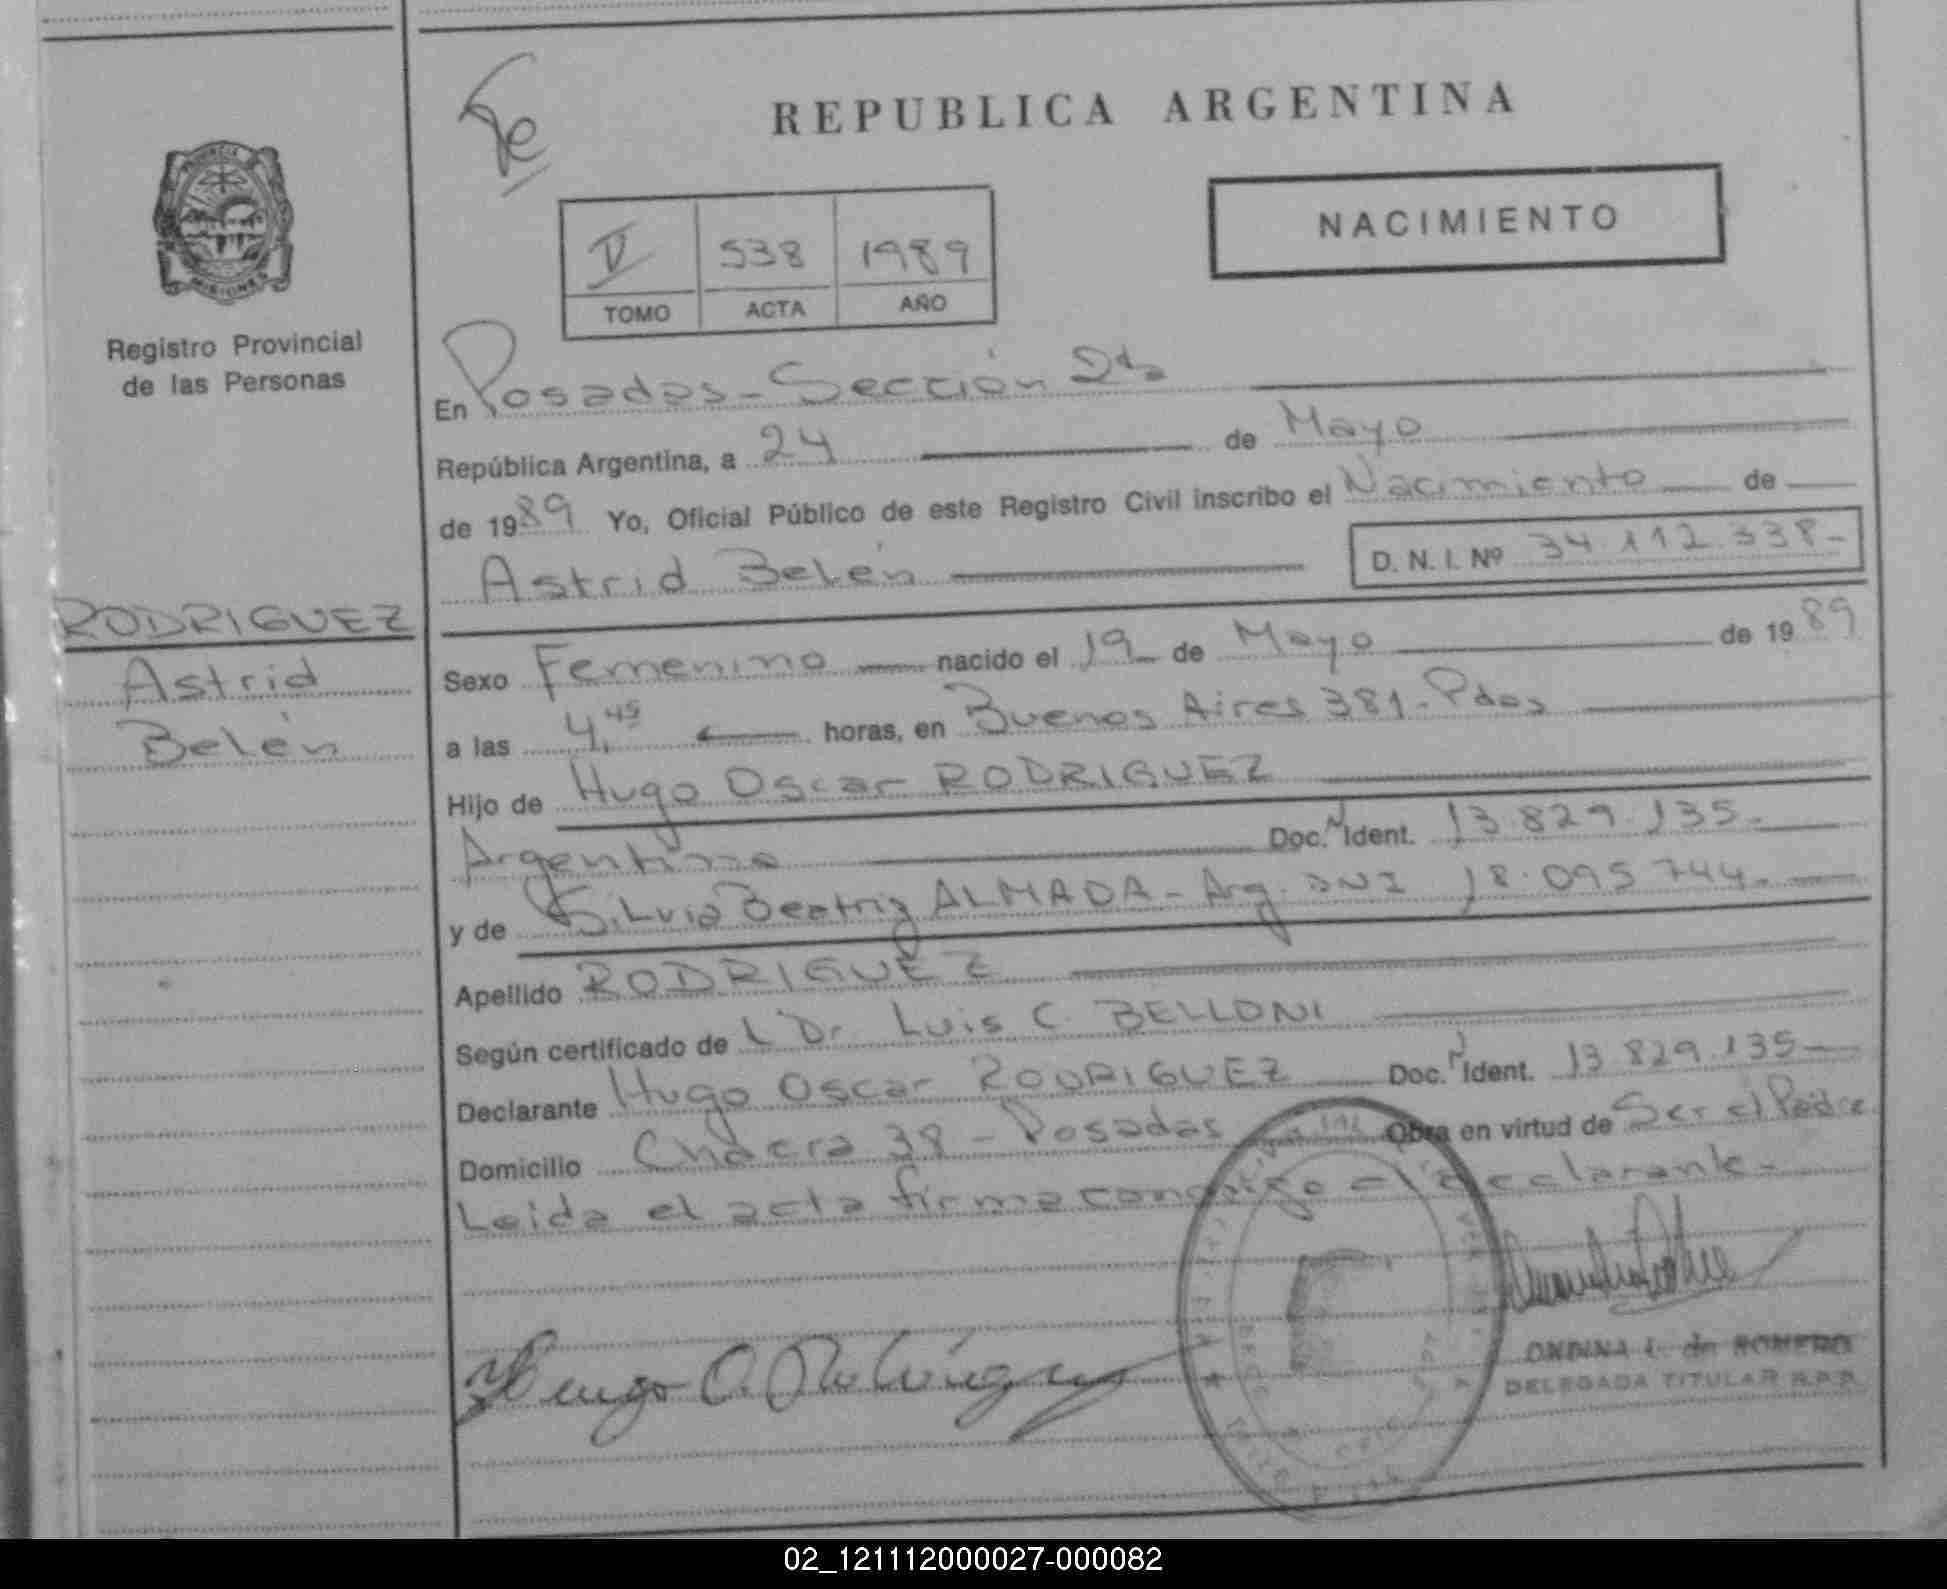 Fe
REPUBLICA ARGENTINA
NACIMIENTO
538 1989
TOMO ACTA AÑO
PROVINCIA DE
MISIONES
Registro Provincial
de las Personas
En Posadas - Sección 2da
República Argentina, a 24 de Mayo
de 1989 Yo, Oficial Público de este Registro Civil inscribo el Nacimiento de
Astrid Belén D. N. I. Nº 34.112.338-
RODRIGUEZ
Astrid
Belén
Sexo Femenino nacido el 19 de Mayo de 1989
a las 4,45 horas, en Buenos Aires 381 - Pdas
Hijo de Hugo Oscar RODRIGUEZ
Argentino Doc. Ident. 13.829.135-
y de Silvia Beatriz ALMADA - Arg. DNI 18.095.744-
Apellido RODRIGUEZ
Según certificado de L Dr. Luis C. BELLONI
Declarante Hugo Oscar RODRIGUEZ Doc. Ident. 13.829.135-
Domicilio Chacra 38 - Posadas Obra en virtud de Ser el Padre
Leida el acta firma conmigo el declarante-
Hugo O. Rodríguez
ONDINA L. de ROMERO
DELEGADA TITULAR R.P.P.
02_121112000027-000082